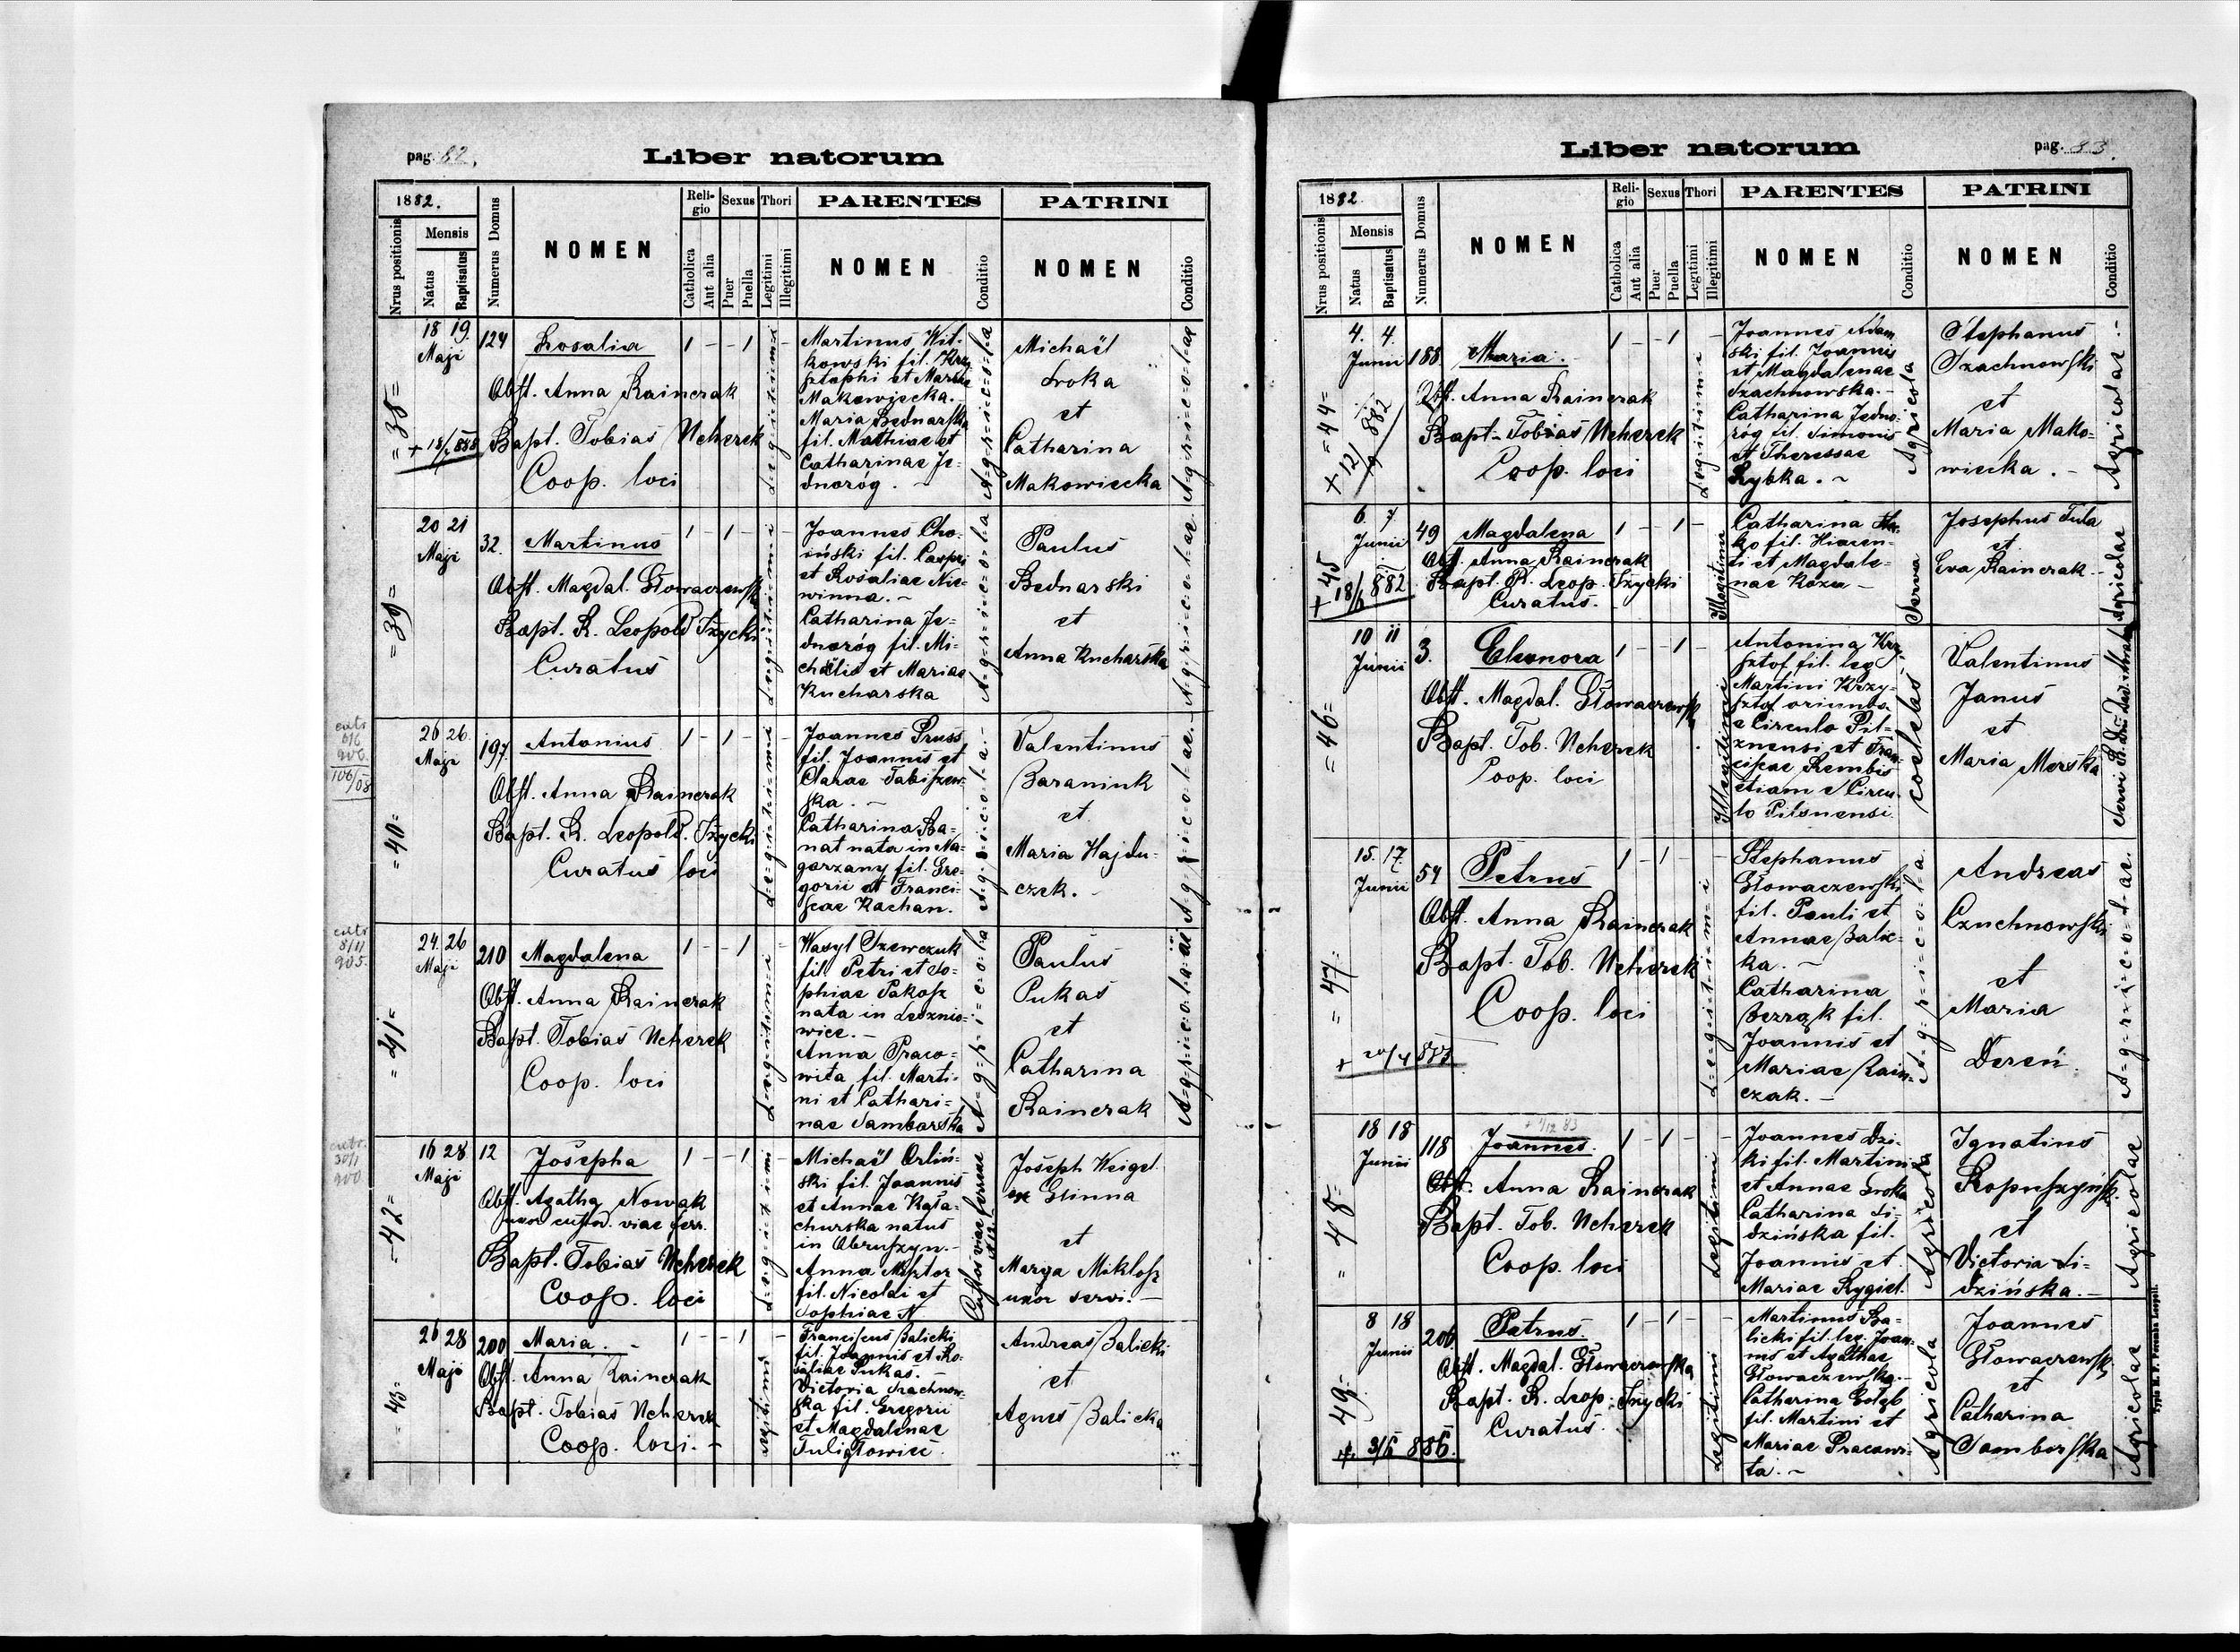 pag. 82.
Liber natorum
1882.
Mensis
Nrus positionis
Natus
Baptisatus
Numerus Domus
NOMEN
Religio
Catholica
Aut alia
Sexus
Puer
Puella
Thori
Legitimi
Illegitimi
PARENTES
NOMEN
Conditio
PATRINI
NOMEN
Conditio
=38=
+ 18/ 888
18 19.
Maji
124
Rosalia
Obst. Anna Rainczak
Bapt. Tobias Ucherek
Coop. loci
1 - - 1 -
Legitimi
Martinus Wit-
kowski fil. Krzy
sztophi et Mariae
Makowiecka.-
Maria Bednarska
fil. Mathiae et
Catharinae Je-
dnoróg. ~
A=g=r=i=c=o=l=a
Michaël
Sroka
et
Catharina
Makowiecka
A=g=r=i=c=o=l=ae
=39=
20 21
Maji
32.
Martinus
Obst. Magdal. Głowaczewska
Bapt. R. Leopold Iżycki
Curatus
1 - 1 - -
Legitimi
Joannes Cho-
iński fil. Caspri
et Rosaliae Nie-
winna. ~
Catharina Je-
dnoróg fil. Mi-
chaëlis et Mariae
Kucharska
A=g=r=i=c=o=l=a
Paulus
Bednarski
et
Anna Kucharska
A=g=r=i=c=o=l=ae.
extr.
6/6
906.
106/08
=40=
26 26.
Maji
197.
Antonius
Obst. Anna Rainczak
Bapt. R. Leopold. Iżycki
Curatus loci
1 - 1 - -
Legitimi
Joannes Pruss
fil. Joannis et
Clarae Tabiszew-
ska. -
Catharina Ba-
nat nata in Na-
gorzany fil. Gre-
gorii et Franci-
scae Kachan.
A=g=r=i=c=o=l=a.-
Valentinus
Baraniuk
et
Maria Hajdu-
czek. -
A=g=r=i=c=o=l=ae.
extr.
8/11
905.
=41=
24. 26
Maji
210
Magdalena
Obst. Anna Rainczak
Bapt. Tobias Ucherek
Coop. loci
1 - - 1 -
Legitimi
Wasyl Szewczuk
fil. Petri et So-
phiae Pakosz
nata in Leoznio-
wice. -
Anna Praco-
wita fil. Marti-
ni et Cathari-
nae Samborska
A=g=r=i=c=o=l=a
Paulus
Pukas
et
Catharina
Rainczak
A=g=r=i=c=o=l=ae
extr.
30/1
900
=42=
16 28
Maji
12
Josepha
Obst. Agatha Nowak
uxor custod. viae ferr.
Bapt. Tobias Ucherek
Coop. loci
1 - - 1 -
Legitimi
Michaël Orliń-
ski fil. Joannis
et Annae Kała-
churska natus
in Obruszyn.-
Anna
fil. Nicolai et
Sophiae N
Custos viae ferreae
Joseph Weigel
ex Glinna
et
Marya Miklosz
uxor servi. -
=43=
26 28
Maji
200
Maria. -
Obst. Anna Rainczak
Bapt. Tobias Ucherek
Coop. loci. -
1 - - 1 -
Legitimi
Franciscus Balicki
fil. Joannis et Ro-
saliae Pukas. -
Victoria Szachnow-
ska fil. Gregorii
et Magdalenae
Tuligłowicz.
Andreas Balicki
et
Agnes Balicka
Liber natorum
pag. 83.
1882
Mensis
Nrus positionis
Natus
Baptisatus
Numerus Domus
NOMEN
Religio
Catholica
Aut alia
Sexus
Puer
Puella
Thori
Legitimi
Illegitimi
PARENTES
NOMEN
Conditio
PATRINI
NOMEN
Conditio
=44=
+ 12/9 882
4. 4.
Junii
188.
Maria. -
Obst. Anna Rainczak
Bapt. Tobias Ucherek
Coop. loci
1 - - 1 -
Legitimi
Joannes Adam
ski fil. Joannis
et Magdalenae
Szachnowska. -
Catharina Jedno-
róg fil. Simonis
et Theressae
Rybka. ~
Agricola
Stephanus
Szachnowski
et
Maria Mako-
wiecka. -
Agricolae -
=45
+ 18/6 882
6. 7
Junii
49
Magdalena
Obst. Anna Rainczak
Bapt. R. Leop. Iżycki
Curatus. -
1 - - 1 -
Illegitimi
Catharina
ko fil. Hiacen-
ti et Magdale-
nae Koza -
Serva
Josephus Tula
et
Eva Rainczak -
Agricolae
=46=
10 11
Junii
3.
Eleonora
Obst. Magdal. Głowaczewsk
Bapt. Tob. Ucherek
Coop. loci
1 - - 1 -
Illegitimi
Antonina Krzy
sztof fil. leg.
Martini Krzy-
sztof oriundo
e Circulo Pil-
znensi et Fran-
ciscae Rembis
etiam e Circu-
lo Pilsnensi.
coelebs
Valentinus
Janus
et
Maria Merska
=47=
+ 20/4 883
15. 17.
Junii
54
Petrus
Obst. Anna Rainczak
Bapt. Tob. Ucherek
Coop. loci
1 - 1 - -
Legitimi
Stephanus
Głowaczewski
fil. Pauli et
Annae Balic-
ka. ~
Catharina
Bezrąk fil.
Joannis et
Mariae Rain-
czak. -
A=g=r=i=c=o=l=a
Andreas
Czuchnowski
et
Maria
Dereń.
A=g=r=i=c=o=l=ae.
=48=
18 18
Junii
118
+ 9/12 83
Joannes.
Obst. Anna Rainczak
Bapt. Tob. Ucherek
Coop. loci
1 - 1 -
Legitimi
Joannes Dzi-
ki fil. Martini
et Annae Sroka
Catharina Si-
dzińska fil.
Joannis et
Mariae Rygiel.
Agricola
Ignatius
Kopuszyńsk
et
Victoria Si-
dzińska. -
Agricolae
=49=
+ 3/5 886.
8 18
Junii
206
Petrus.
Obst. Magdal. Głowaczewska
Bapt. R. Leop. Iżycki
Curatus.
1 - 1 -
Legitimi
Martinus Ba-
licki fil. leg. Joan-
nis et Agathae
Głowaczewska. -
Catharina Gołąb
fil. Martini et
Mariae Pracowi-
ta. ~
Agricola
Joannes
Głowaczewsk
et
Catharina
Samborska
Agricolae